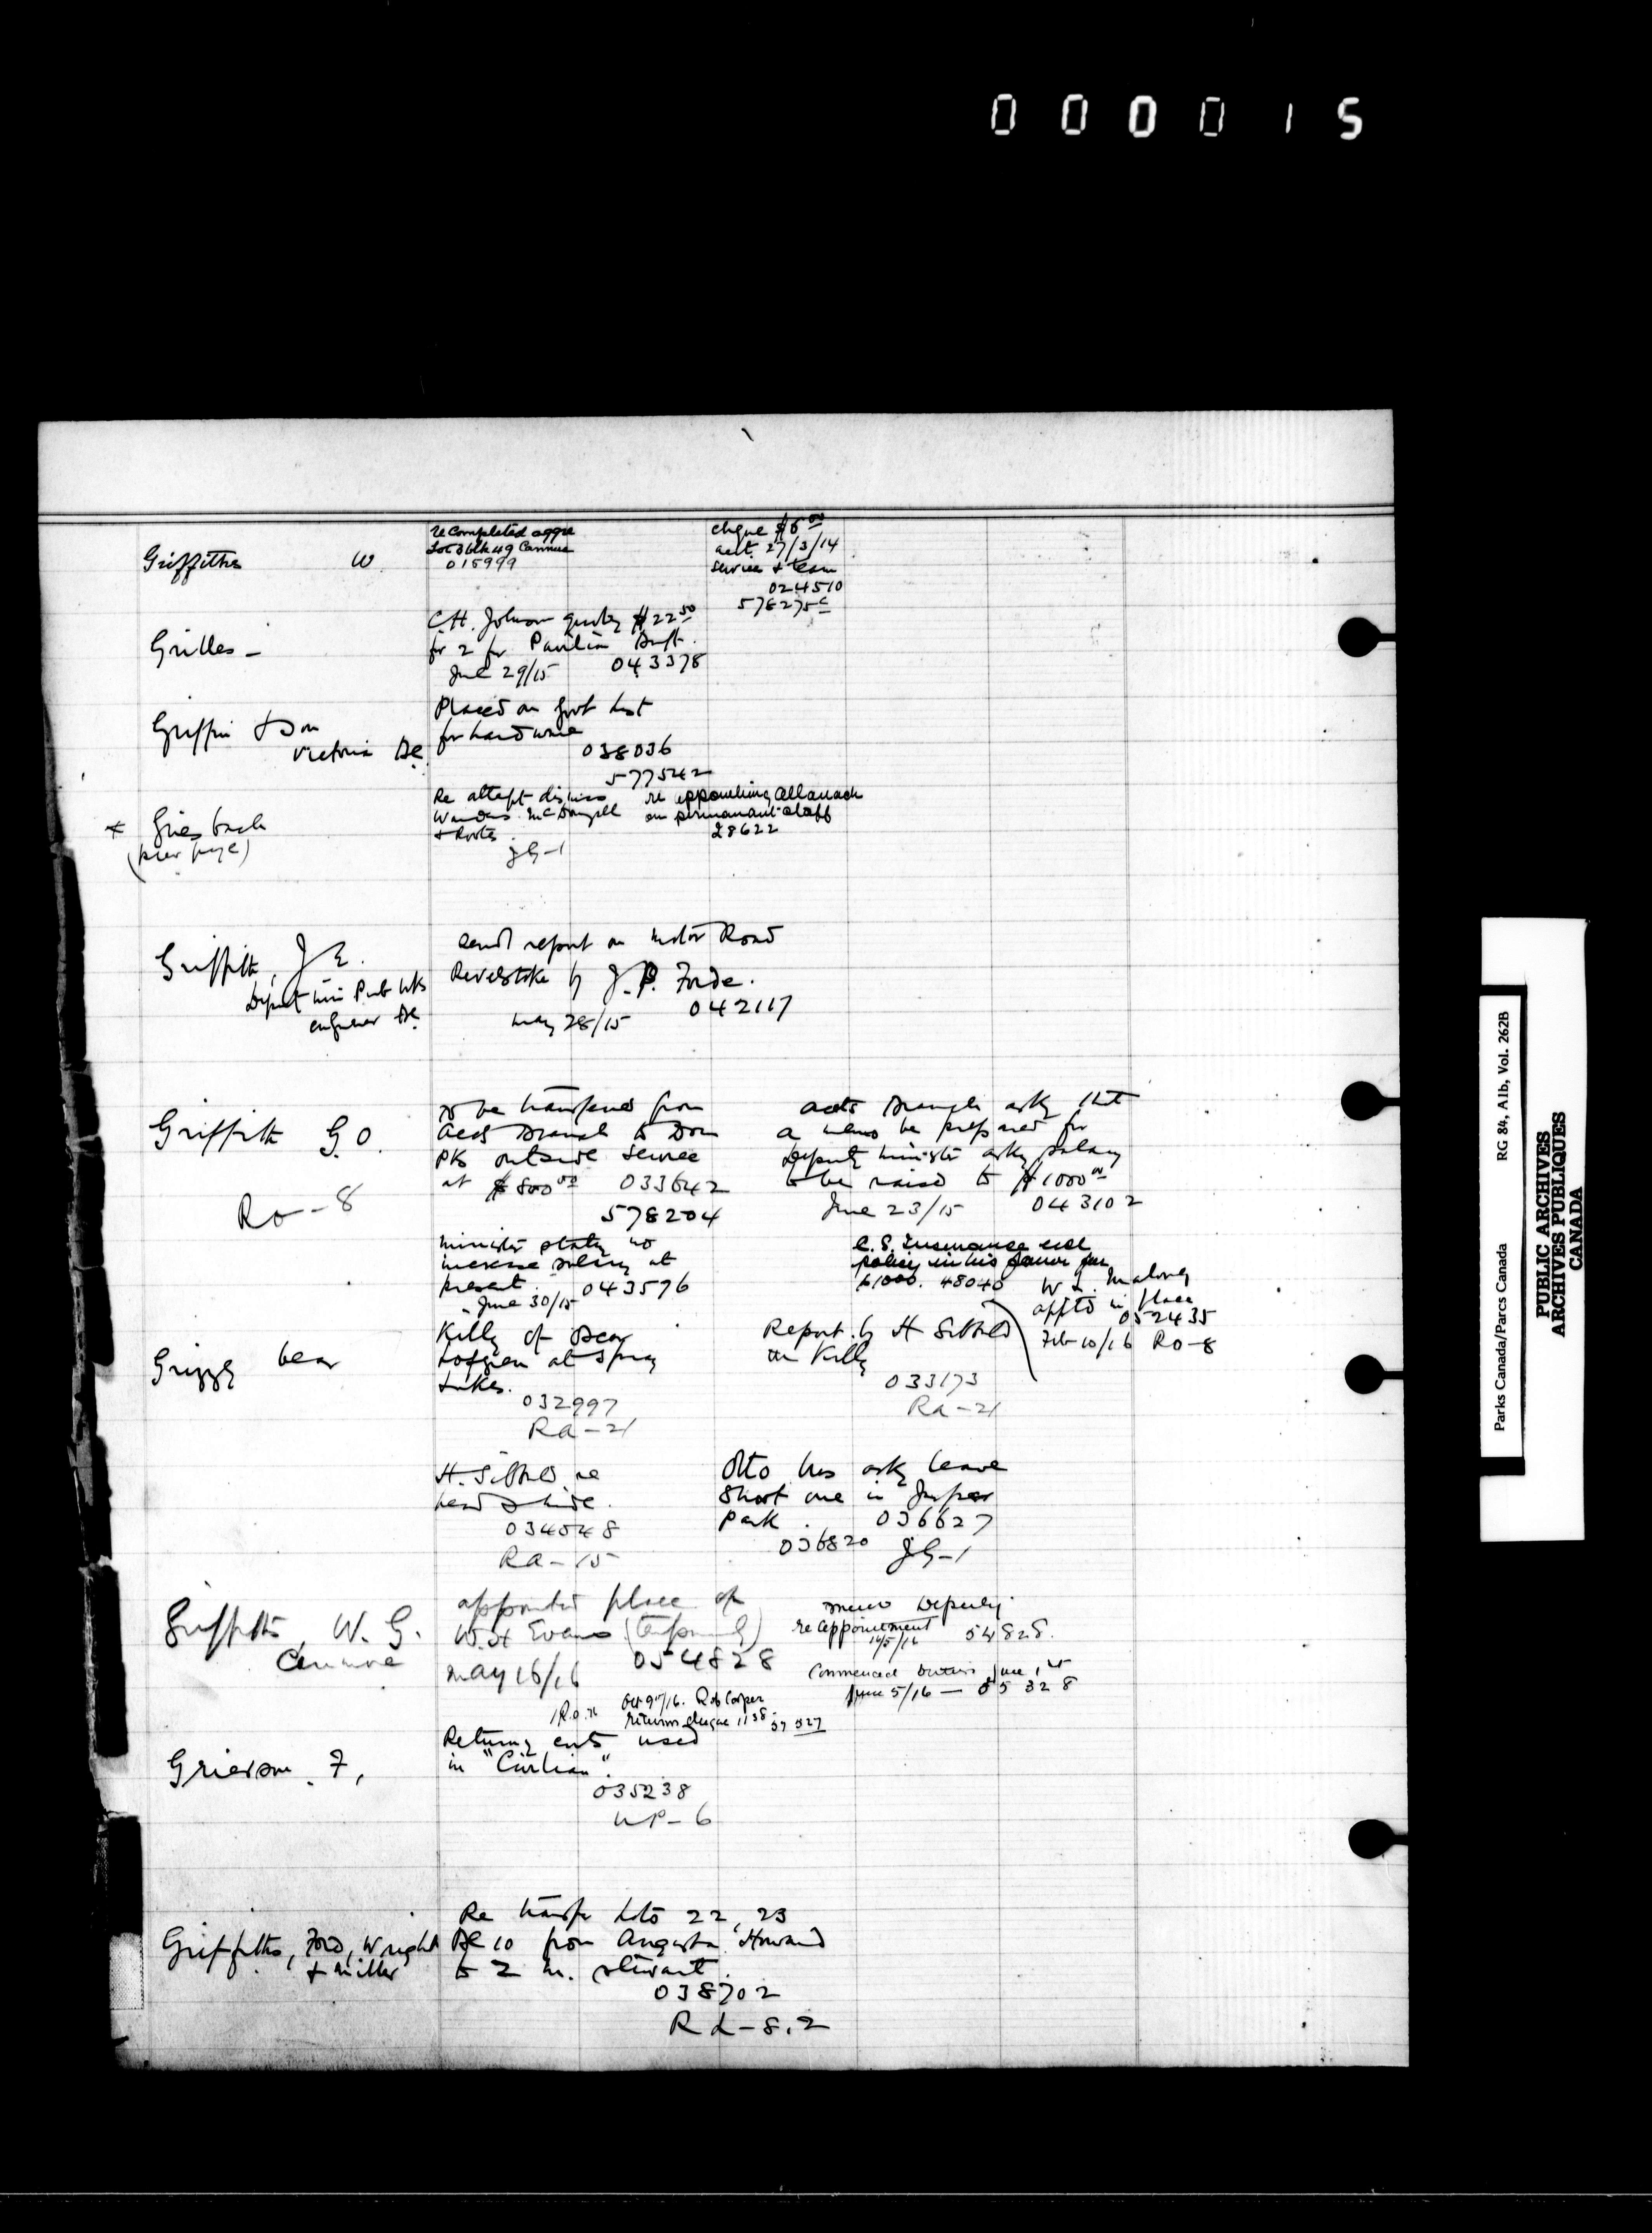 000015
Griffiths W
re Completed aggre
Lot 3 blk 49 Canmore
015999
chque $6.00
acct. 27/3/14
service & team
024510
578275c
Grilles -
C.H. Johnson quoting $22.50
for 2 for Pavilion Banff.
June 29/15 043378
Griffin & Son
Victoria BC
Placed on Govt List
for hardware
038036
577542
* Griesbach
(prev page)
Re attempt dismiss
Wardens McDougall
& Roots.
JG-1
re appointing Allanach
on permanant staff
28622
Griffith, J E.
Deput min Pub Wks
engineer BC
Send report on Motor Road
Revelstoke by J.P. Forde.
May 28/15 042117
Griffith G.O.
Ro-8
To be transferred from
Accts Branch to Dom
Pks outside service
at $800.00 033642
578204
Accts Branch asking that
a memo be prepared for
Deputy minister asking salary
to be raised to $1000.00
June 23/15 043102
Minister stating no
increase salary at
present. 043576
June 30/15
C.S. Insurance
policy in his favour for
$1000. 48040
W. L. Malony
apptd in place
052435
Feb 10/16 Ro-8
Grizzly bear
Killing of Bear
Lofgren at Spray
Lakes.
032997
Ra-21
Report by H Sibbald
on Killing
033173
Ra-21
H. Sibbald re
head & hide.
034548
Ra-15
Otto Bros asking leave
Shoot one in Jasper
Park. 036627
036820 JG-1
Griffiths, W. G.
Canmore
appointed place of
W.H Evans (temporarily)
May 16/16 054828
Memo Deputy
re appointment 54828.
16/5/16
Commenced duties June 1st
June 5/16 — 55328
Oct 9/16. Rob Cooper
returns cheque 1158. 57327
Grierson. F,
Returning cuts used
in
035238
UP-6
Griffiths, Ford, Wright
& Miller
Re transfer Lots 22, 23
Bl 10 from Angusta Howard
to Z M. Stewart.
038702
RL-8.2
Parks Canada/Parcs Canada RG 84, A1b, Vol. 262B
PUBLIC ARCHIVES
ARCHIVES PUBLIQUES
CANADA